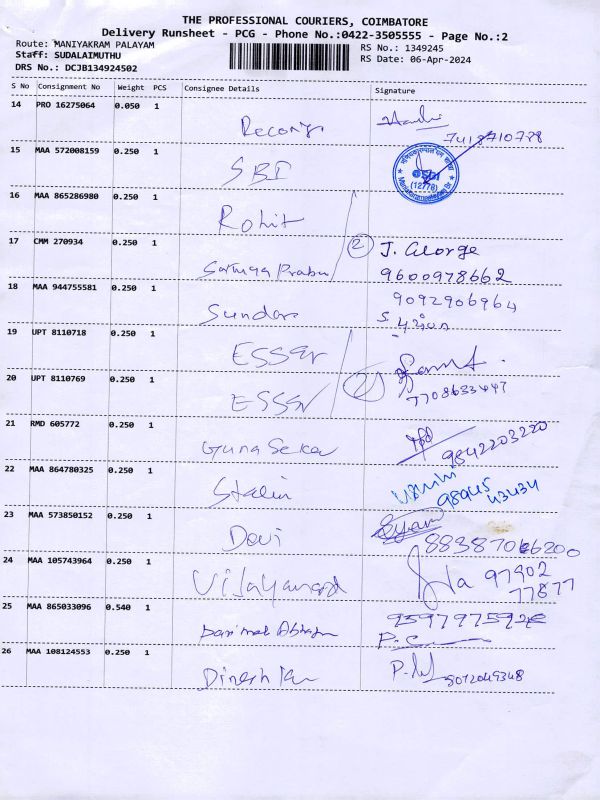 THE PROFESSIONAL COURIERS, COIMBATORE
Delivery Runsheet - PCG - Phone No.:0422-3505555 - Page No.:2
Route: MANIYAKRAM PALAYAM
Staff: SUDALAIMUTHU
DRS No.: DCJB134924502
RS No.: 1349245
RS Date: 06-Apr-2024
S No Consignment No Weight PCS Consignee Details Signature
14 PRO 16275064 0.050 1
7418710778
15 MAA 572008159 0.250 1 SBI
SBI
(12778)
16 MAA 865286980 0.250 1 Rohit
17 CMM 270934 0.250 1 Prabu 2 J. George
9600978662
18 MAA 944755581 0.250 1 Sundar 9092906964
19 UPT 8110718 0.250 1 ESSER
20 UPT 8110769 0.250 1 ESSER 2
7708633447
21 RMD 605772 0.250 1 Guna Sekar
9842203220
22 MAA 864780325 0.250 1 Stalin 98945
43434
23 MAA 573850152 0.250 1 Devi
24 MAA 105743964 0.250 1 Vijayanand 97902
77877
25 MAA 865033096 0.540 1
P.C
26 MAA 108124553 0.250 1 Dinesh